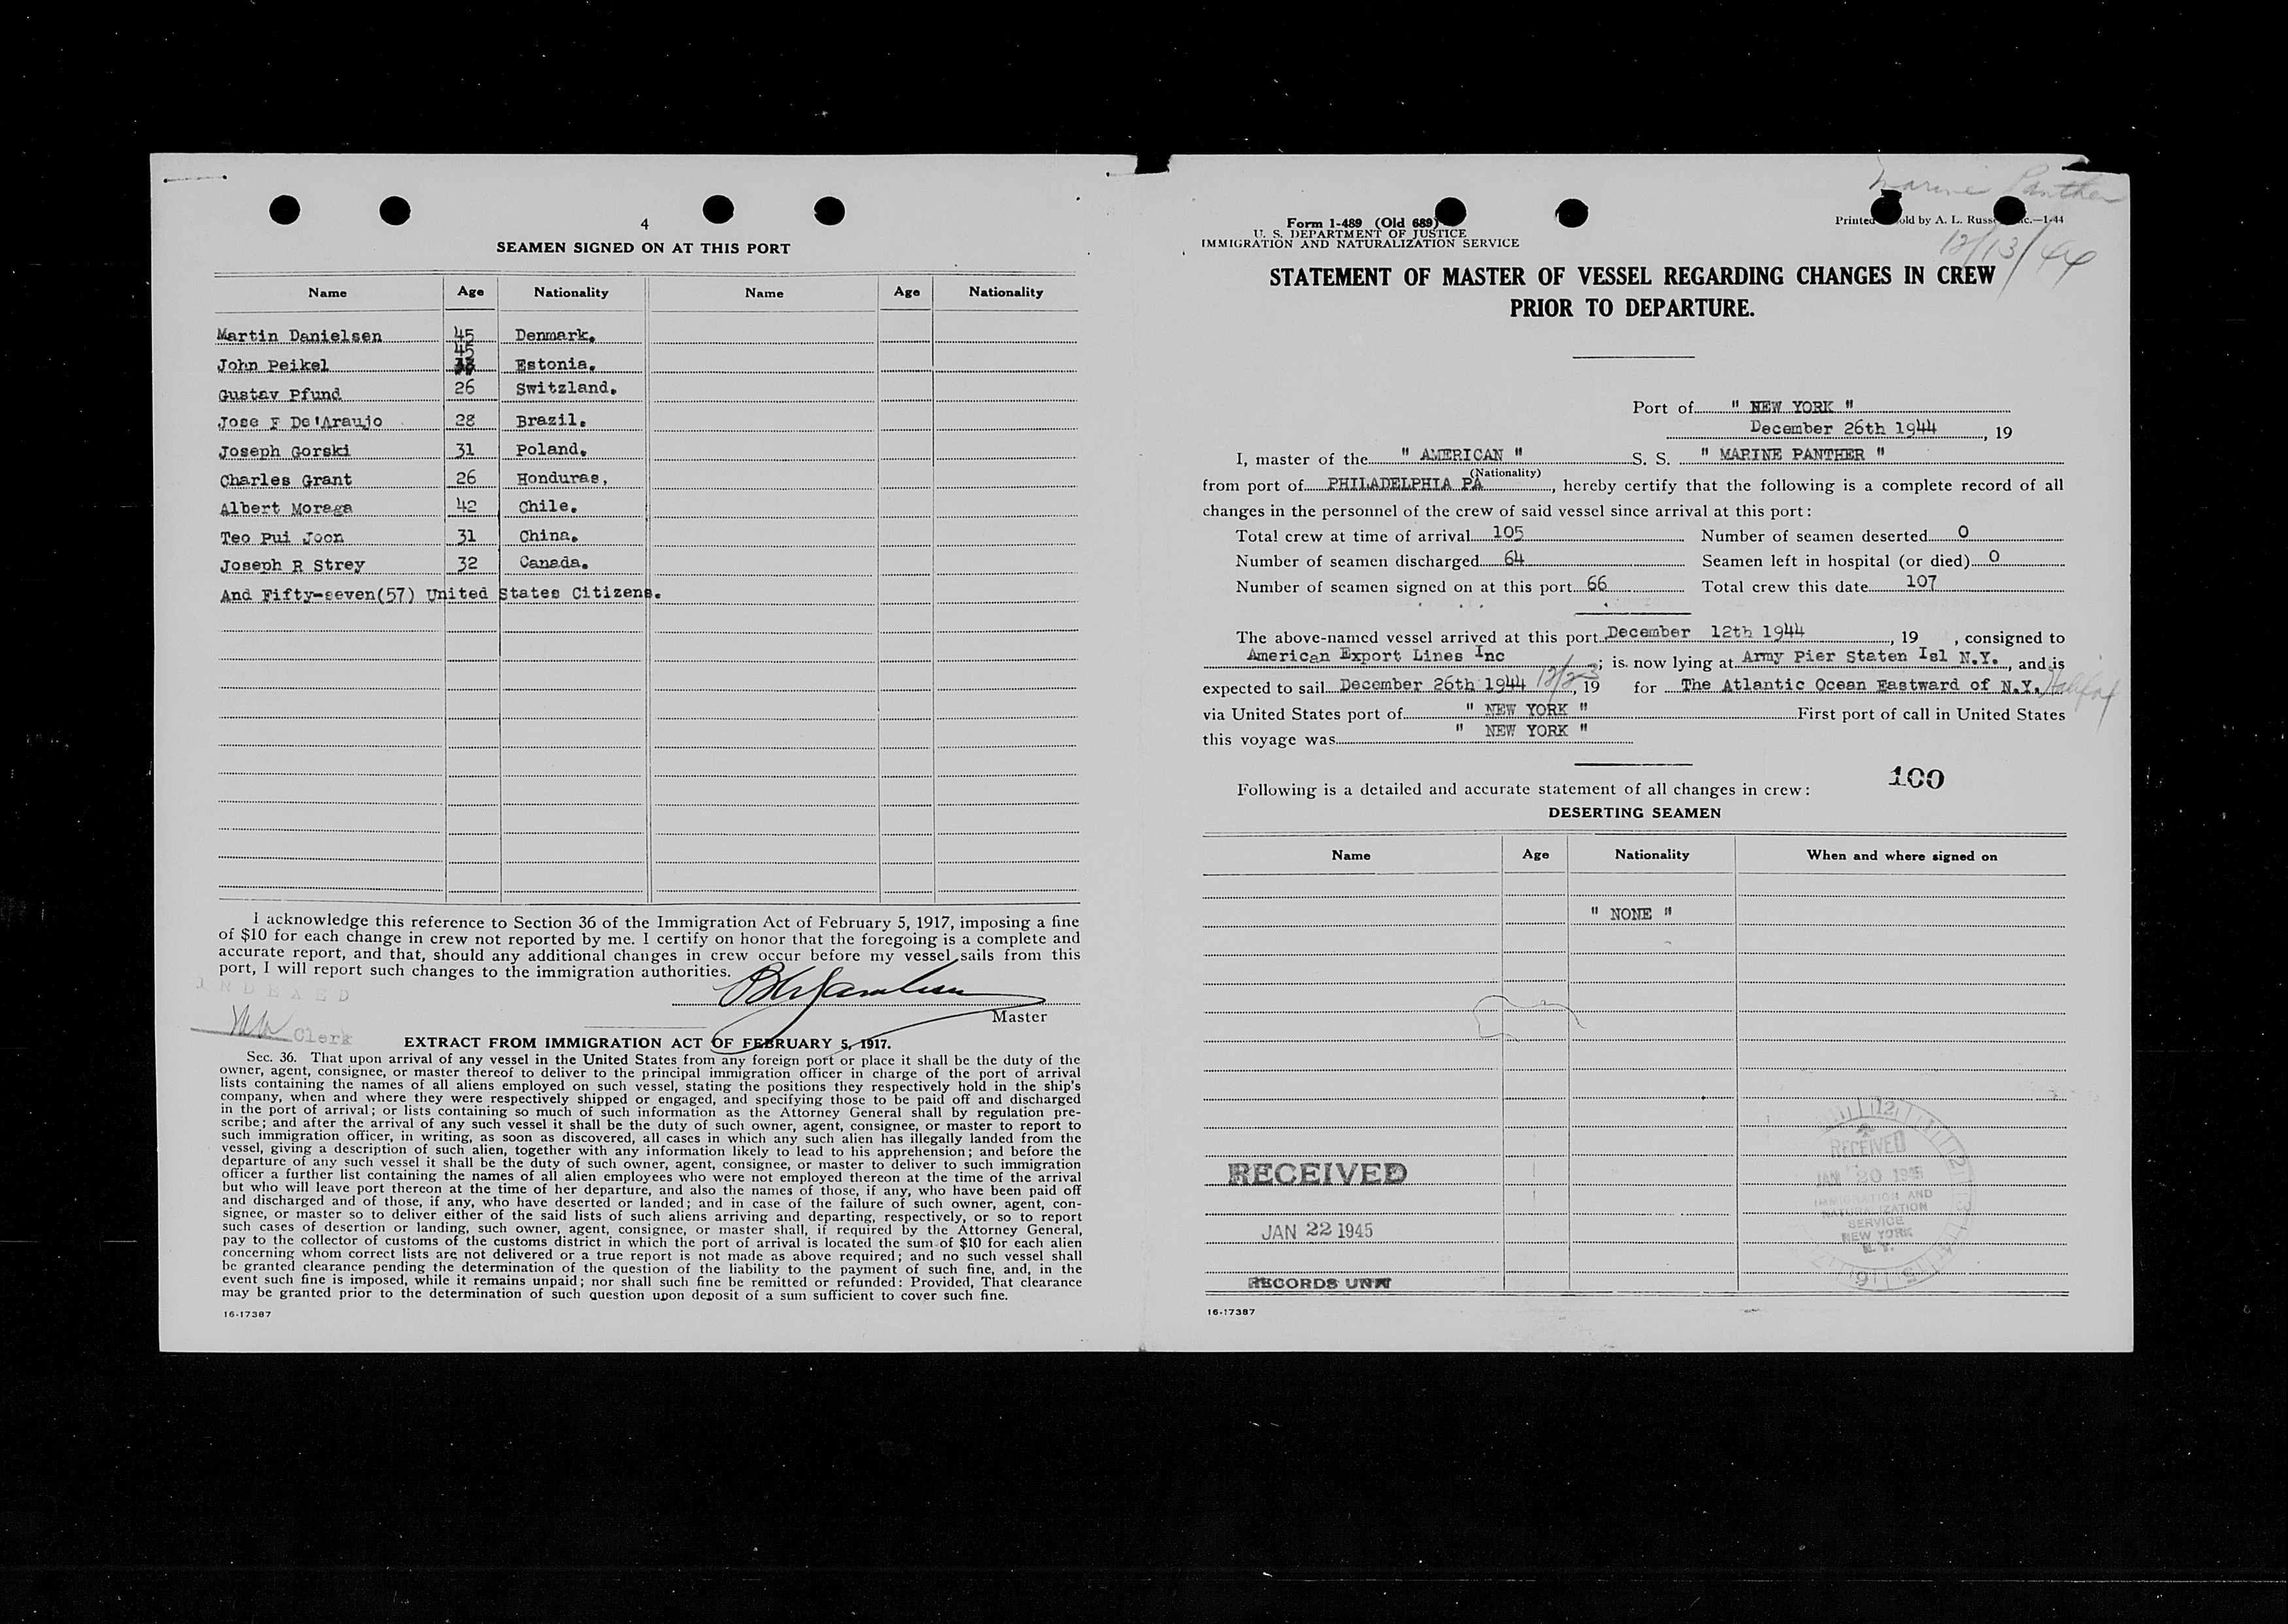 4
SEAMEN SIGNED ON AT THIS PORT
Name Age Nationality Name Age Nationality
Martin Danielsen 45 Denmark.
45
John Peikel Estonia.
Gustav Pfund 26 Switzland.
Jose F De'Araujo 28 Brazil.
Joseph Gorski 31 Poland.
Charles Grant 26 Honduras,
Albert Moraga 42 Chile.
Teo Pui Joon 31 China.
Joseph R Strey 32 Canada.
And Fifty-seven(57) United States Citizens.
I acknowledge this reference to Section 36 of the Immigration Act of February 5, 1917, imposing a fine
of $10 for each change in crew not reported by me. I certify on honor that the foregoing is a complete and
accurate report, and that, should any additional changes in crew occur before my vessel sails from this
port, I will report such changes to the immigration authorities.
INDEXED
Master
Clerk
EXTRACT FROM IMMIGRATION ACT OF FEBRUARY 5, 1917.
Sec. 36. That upon arrival of any vessel in the United States from any foreign port or place it shall be the duty of the
owner, agent, consignee, or master thereof to deliver to the principal immigration officer in charge of the port of arrival
lists containing the names of all aliens employed on such vessel, stating the positions they respectively hold in the ship's
company, when and where they were respectively shipped or engaged, and specifying those to be paid off and discharged
in the port of arrival; or lists containing so much of such information as the Attorney General shall by regulation pre-
scribe; and after the arrival of any such vessel it shall be the duty of such owner, agent, consignee, or master to report to
such immigration officer, in writing, as soon as discovered, all cases in which any such alien has illegally landed from the
vessel, giving a description of such alien, together with any information likely to lead to his apprehension; and before the
departure of any such vessel it shall be the duty of such owner, agent, consignee, or master to deliver to such immigration
officer a further list containing the names of all alien employees who were not employed thereon at the time of the arrival
but who will leave port thereon at the time of her departure, and also the names of those, if any, who have been paid off
and discharged and of those, if any, who have deserted or landed; and in case of the failure of such owner, agent, con-
signee, or master so to deliver either of the said lists of such aliens arriving and departing, respectively, or so to report
such cases of desertion or landing, such owner, agent, consignee, or master shall, if required by the Attorney General,
pay to the collector of customs of the customs district in which the port of arrival is located the sum of $10 for each alien
concerning whom correct lists are not delivered or a true report is not made as above required; and no such vessel shall
be granted clearance pending the determination of the question of the liability to the payment of such fine, and, in the
event such fine is imposed, while it remains unpaid; nor shall such fine be remitted or refunded: Provided, That clearance
may be granted prior to the determination of such question upon deposit of a sum sufficient to cover such fine.
16-17387
Marine Panther
Form I-489 (Old 689)
U. S. DEPARTMENT OF JUSTICE
IMMIGRATION AND NATURALIZATION SERVICE
Printed old by A. L. Russ c.—1-44
12/13/44
STATEMENT OF MASTER OF VESSEL REGARDING CHANGES IN CREW
PRIOR TO DEPARTURE.
Port of " NEW YORK "
December 26th 1944, 19
I, master of the " AMERICAN " S. S. " MARINE PANTHER "
(Nationality)
from port of PHILADELPHIA PA, hereby certify that the following is a complete record of all
changes in the personnel of the crew of said vessel since arrival at this port:
Total crew at time of arrival 105 Number of seamen deserted 0
Number of seamen discharged 64 Seamen left in hospital (or died) 0
Number of seamen signed on at this port 66 Total crew this date 107
The above-named vessel arrived at this port December 12th 1944, 19 , consigned to
American Export Lines Inc; is now lying at Army Pier Staten Isl N.Y., and is
expected to sail December 26th 1944 12/23, 19 for The Atlantic Ocean Eastward of N.Y. Halifax
via United States port of " NEW YORK " First port of call in United States
this voyage was " NEW YORK "
100
Following is a detailed and accurate statement of all changes in crew:
DESERTING SEAMEN
Name Age Nationality When and where signed on
" NONE "
RECEIVED
JAN 22 1945
RECORDS UNIT
12
RECEIVED
JAN 20 1945
IMMIGRATION AND
NATURALIZATION
SERVICE
NEW YORK
N. Y.
16-17387